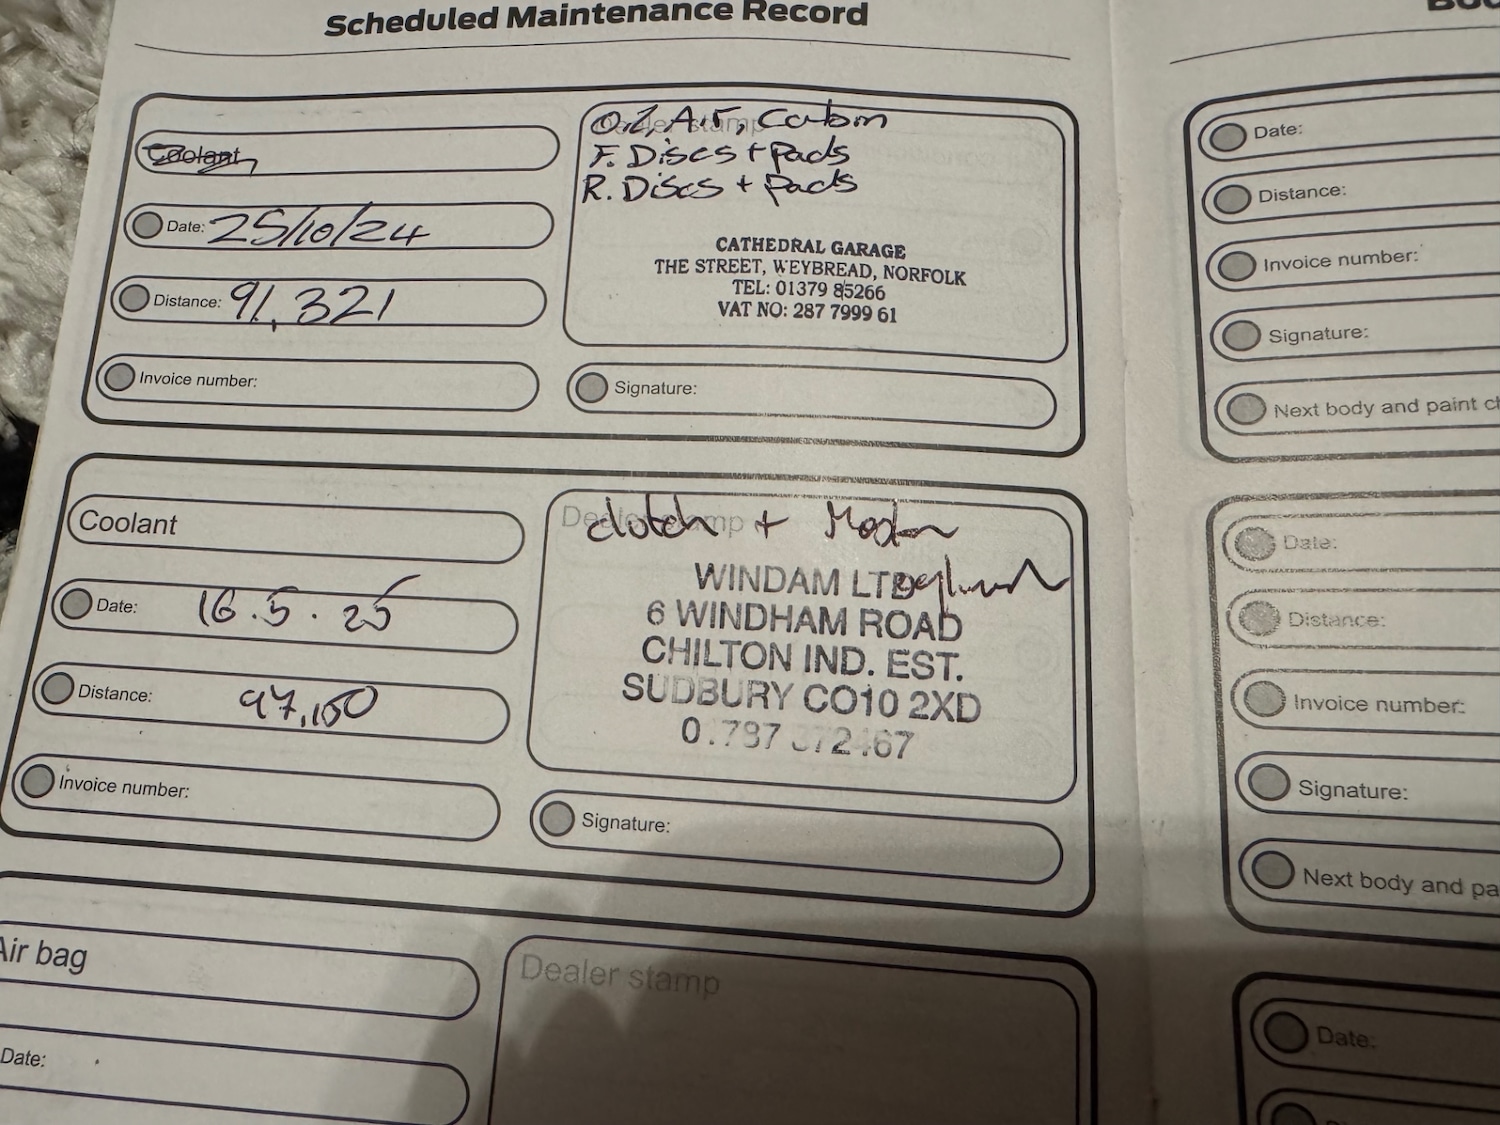 Scheduled Maintenance Record
Coolant
Date: 25/10/24
Distance: 91,321
Invoice number:
Dealer stamp
Air, Cabin
F. Discs + Pads
R. Discs + Pads
CATHEDRAL GARAGE
THE STREET, WEYBREAD, NORFOLK
TEL: 01379 85266
VAT NO: 287 7999 61
Signature:
Coolant
Date: 16.5.25
Distance: 97,150
Invoice number:
Dealer stamp
clutch + Master
cylinder
WINDAM LTD
6 WINDHAM ROAD
CHILTON IND. EST.
SUDBURY CO10 2XD
Signature:
Air bag
Date:
Dealer stamp
Date:
Distance:
Invoice number:
Signature:
Next body and paint
Date:
Distance:
Invoice number:
Signature:
Next body and
Date: